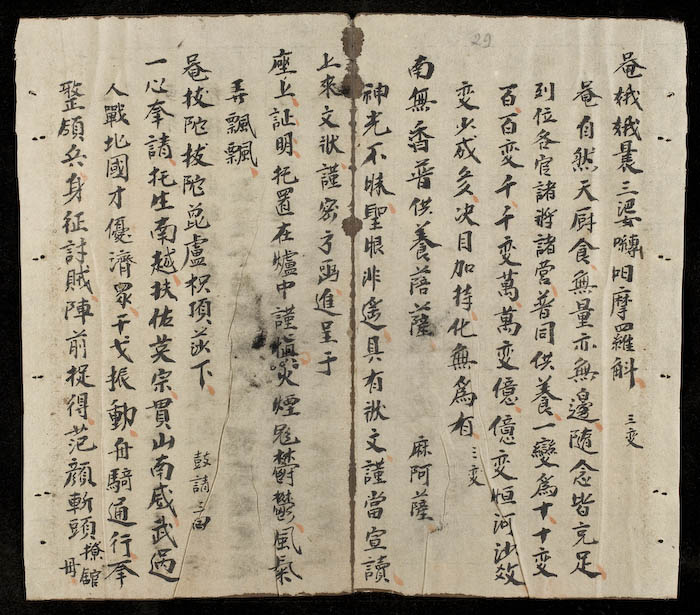 29
唵娥娥曩三婆囀呬摩羅斛 三变
唵自然天厨食無量亦無邊隨念皆充足
到位各官諸將諸营普同供養一變爲十十变
百百变千千变萬萬变億億变恒河沙数
变少成多决目加持化無爲有 三变
南無香普供養菩薩 麻阿薩
神光不昧聖眼非遥具有狀文謹當宣讀
上來文狀謹宻亐函進呈于
座上証明托置在爐中謹愼火煙㐌鬱鬱風氣
吾飄飄
唵技陀技陀毘盧枳項莎下 鼓請三回
一心奉請托生南越扶佐英宗貫山南威武過
人戰北國才優濟眾干戈振動舟騎通行奉
整領兵身征討賊陣前捉得范顏斬頭 館 毋